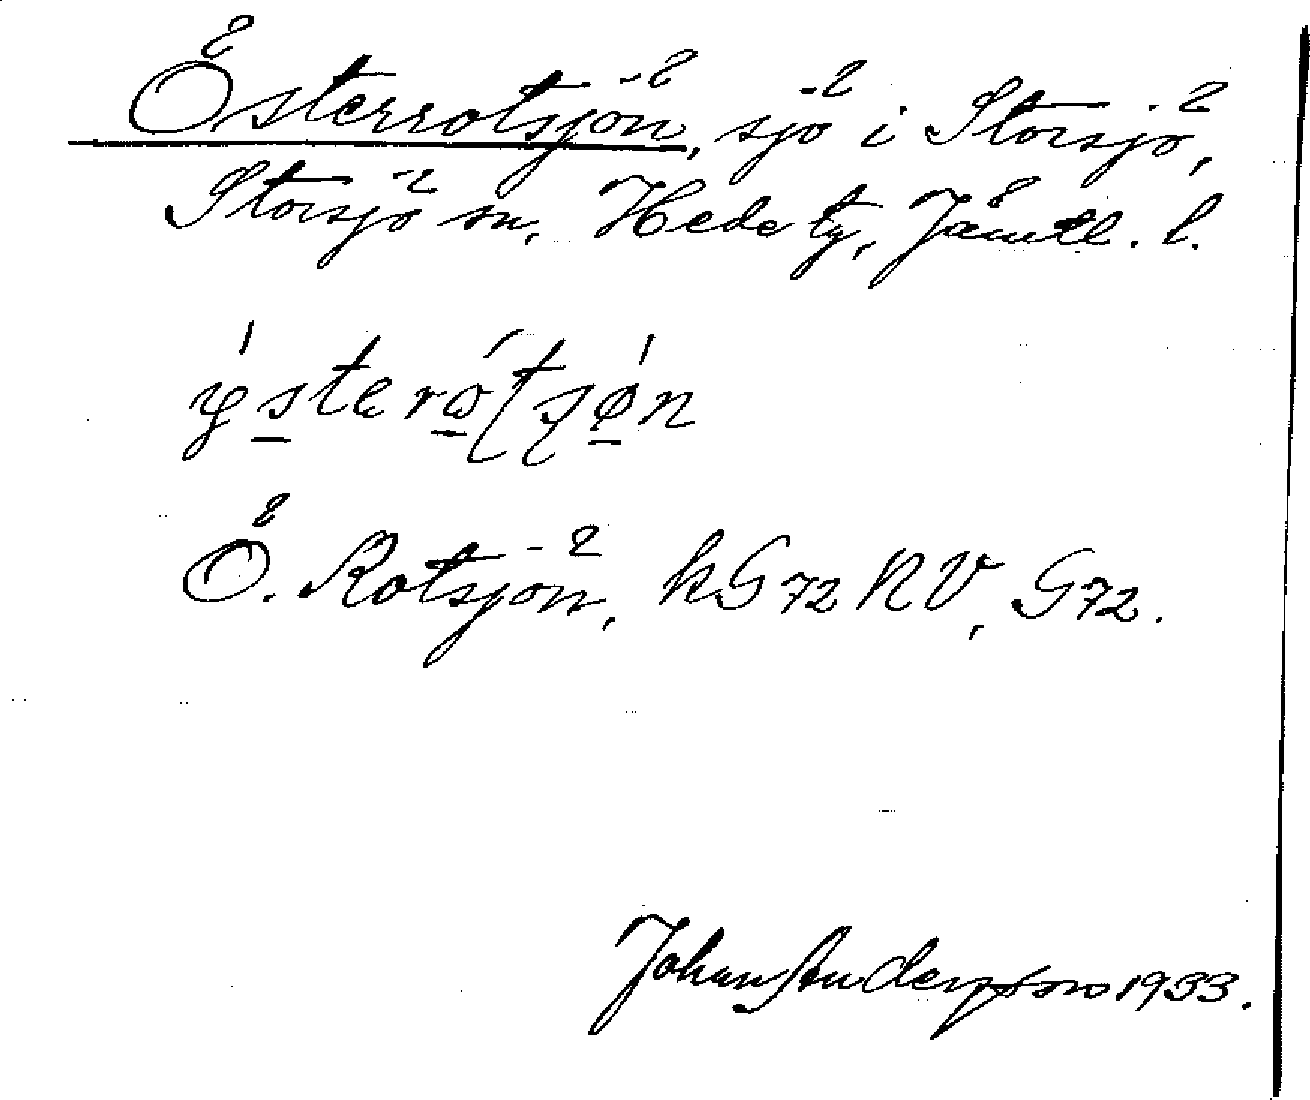 Österrotsjön, sjö i Storsjö,
Storsjö sn, Hede tg, Jämtl. l.
Ö. Rotsjön, kG72NV, G72.
Johan Anderson 1933.